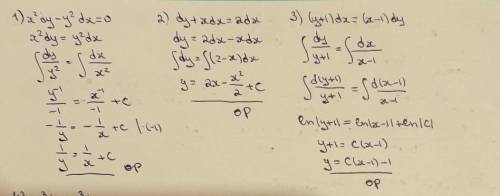 1) x² dy - y² dx = 0
x² dy = y² dx
∫ dy/y² = ∫ dx/x²
y⁻¹/-1 = x⁻¹/-1 + C
-1/y = -1/x + C /·(-1)
1/y = 1/x + C
OP
2) dy + x dx = 2dx
dy = 2dx - x dx
∫ dy = ∫ (2-x) dx
y = 2x - x²/2 + C
OP
3) (y+1) dx = (x-1) dy
∫ dy/y+1 = ∫ dx/x-1
∫ d(y+1)/y+1 = ∫ d(x-1)/x-1
ln|y+1| = ln|x-1| + ln|C|
y+1 = C(x-1)
y = C(x-1) - 1
OP